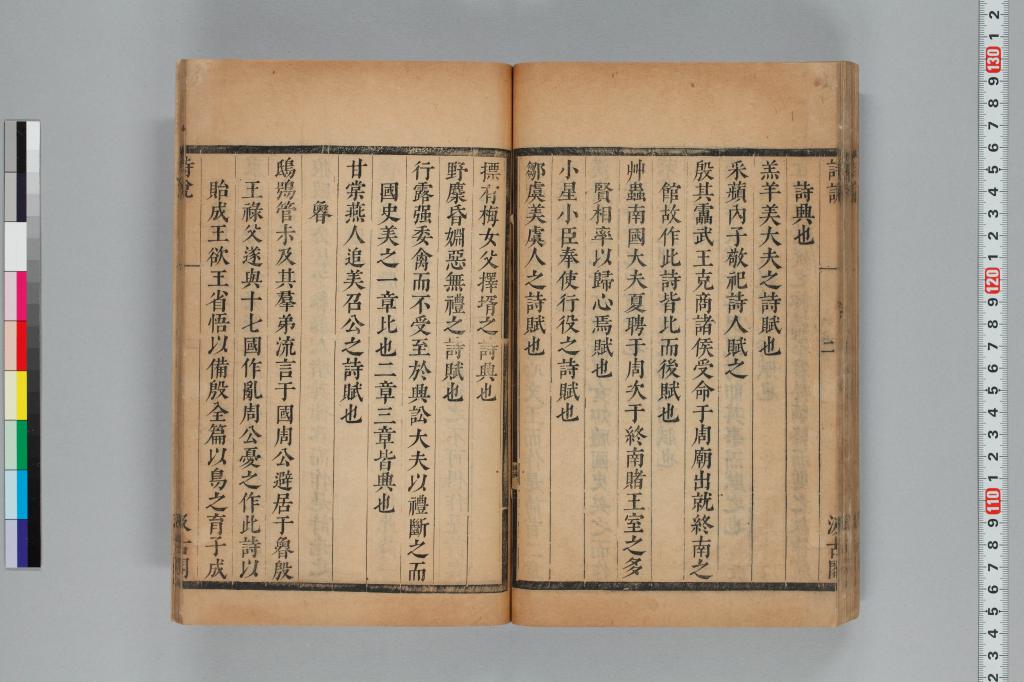 詩說
二
汲古閣
詩興也
羔羊美大夫之詩賦也
采蘋內子敬祀詩人賦之
殷其靁武王克商諸侯受命于周廟出就終南之
館故作此詩皆比而後賦也
艸蟲南國大夫夏聘于周次于終南賭王室之多
賢相率以歸心焉賦也
小星小臣奉使行役之詩賦也
鄒虞美虞人之詩賦也
摽有梅女父擇壻之詩興也
野麕昏婣惡無禮之詩賦也
行露强委禽而不受至於興訟大夫以禮斷之而
國史美之一章比也二章三章皆興也
甘棠燕人追美召公之詩賦也
魯
鴟鴞管叔及其羣弟流言于國周公避居于魯殷
王祿父遂與十七國作亂周公憂之作此詩以
貽成王欲王省悟以備殷全篇以鳥之育子成
詩說
汲古閣
2
1
130
9
8
7
6
5
4
3
2
1
120
9
8
7
6
5
4
3
2
1
110
9
8
7
6
5
4
3
2